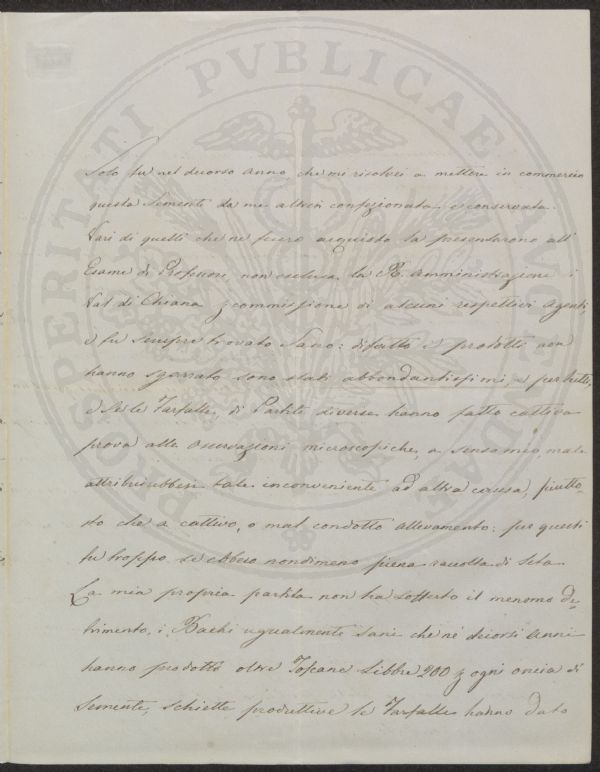 PROSPERITATI PVBLICAE AVGENDAE
Solo fu nel decorso anno, che mi risolvei a mettere in commercio
questa Sementi da me altresì confezionata e conservata.
Vari di quelli che ne fecero acquisto la presentarono all'
Esame di Professori, non esclusa la R. Amministrazione i
Val di Chiana p commissione di alcuni respettivi Agenti,
e fu sempre trovato Sano: difatto i prodotti non
hanno sgarrato sono stati abbondantissimi, e per tutti,
e Se le Farfalle, di Partite diverse hanno fatto cattiva
prova alle Osservazioni microscopiche, a senso mio, male
attribuirebbesi tale inconveniente ad altra causa, piutto-
sto che a cattivo, o mal condotto allevamento: per questi
fu troppo se ebbero nondimeno piena raccolta di Seta
La mia propria partita non ha sofferto il menomo de-
trimento, i Bachi ugualmente sani che ne' decorsi anni
hanno prodotto oltre Toscane Libbre 200 p ogni oncia di
Semente, schiette produttive le Farfalle hanno dato